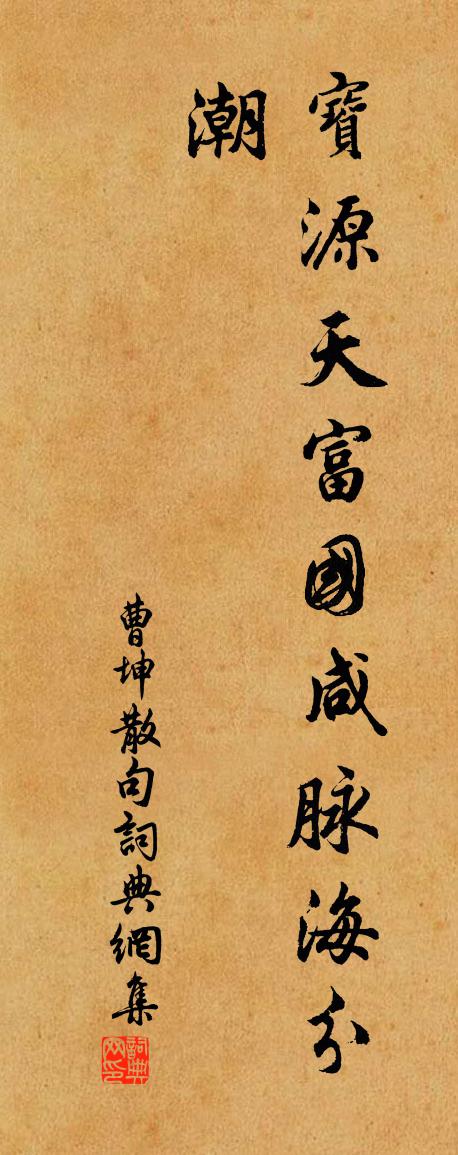 寶源天富國咸脉海分
潮
曹坤散句詞典網集
詞典
网印